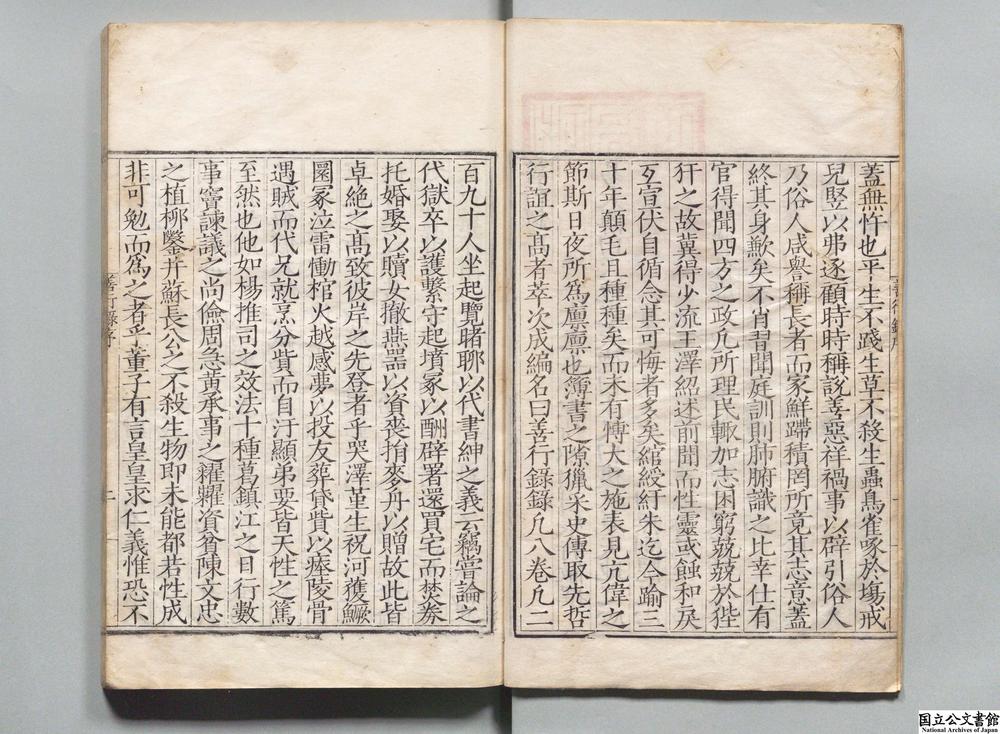 蓋無忤也平生不踐生草不殺生蟲鳥雀啄於塲戒
兒竪以弗逐顧時時稱說善惡祥禍事以辟引俗人
乃俗人咸譽稱長者而家鮮蹛積罔所竟其志意蓋
終其身歉矣不肖習聞庭訓則肺腑識之比幸仕有
官得聞四方之政凡所理民輙加志困窮兢兢於狴
犴之故冀得少流王澤紹述前聞而性靈或蝕和戾
互宣伏自循念其可悔者多矣綰綬紆朱迄今踰三
十年顛毛且種種矣而未有慱大之施表見亢偉之
節斯日夜所爲廪廪也簿書之隙獵采史傳取先哲
行誼之髙者萃次成編名曰善行錄錄凡八卷凡二
百九十人坐起覽睹聊以代書紳之義云竊甞論之
代獄卒以護繫守起墳冢以酬辟署還買宅而焚券
托婚娶以贖女撤燕噐以資喪捐麥舟以贈故此皆
卓絶之髙致彼岸之先登者乎哭澤堇生祝河獲鱖
圍冢泣雷慟棺火越感夢以投友葬貸貲以瘞陵骨
遇賊而代兄就烹分貲而自汙顯弟要皆天性之篤
至然也他如楊推司之效法十種葛鎮江之日行數
事竇諫議之尚儉周急黄承事之糴糶資貧陳文忠
之植栁鑿井蘇長公之不殺生物即未能都若性成
非可勉而爲之者乎董子有言皇皇求仁義惟恐不
善行錄序
一
善行錄序
二
国立公文書館
National Archives of Japan